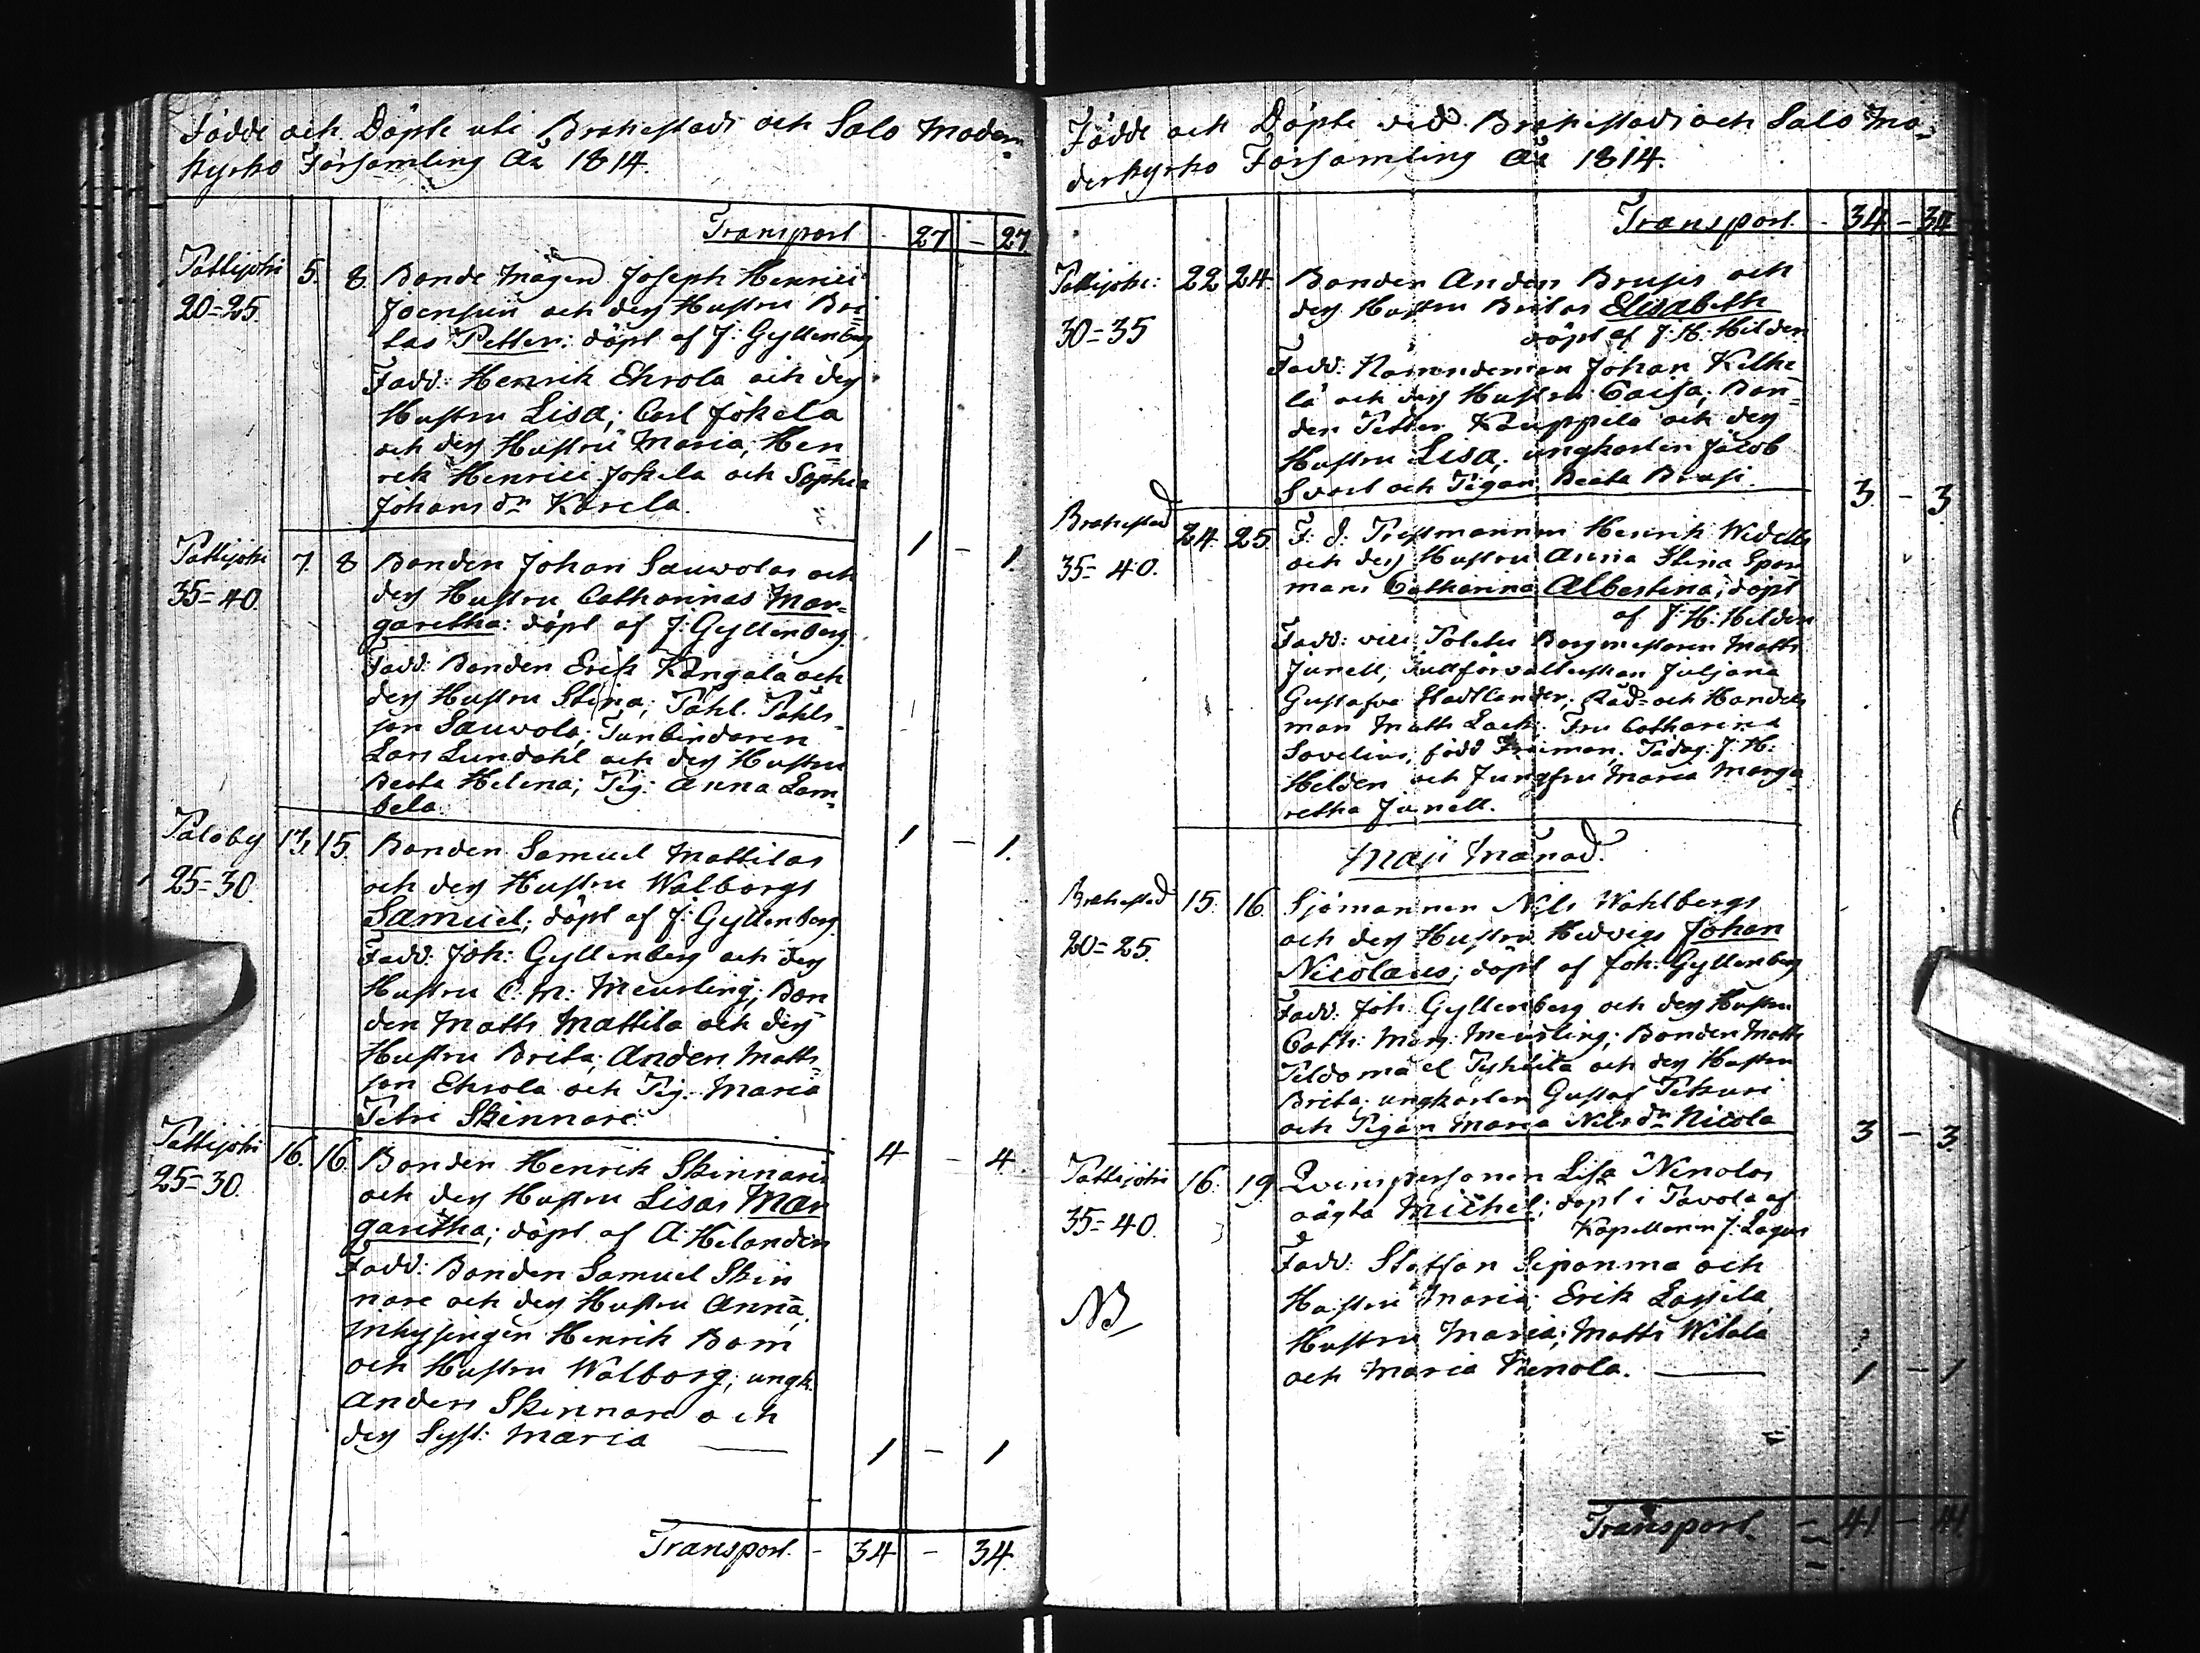 Födde och Döpte uti Brahestads och Salo Moder=
kyrko Församling År 1814.
Transport - 27 - 27
Pattijoki 5. 8. Bonde Mågen Joseph Henrici
20=25. Joensuu och des Hustru Bri=
tas Petter: döpt af J: Gyllenberg
Fadd: Henrik Ehrola och des
Hustru Lisa; Carl Jokela
och des Hustru Maria; Hen=
rik Henrici Jokela och Sophia
Johans dr Karela.
1 - 1.
Pattijoki 7. 8 Bonden Johan Sauwolas och
35=40. des Hustru Catharinas Mar=
garetha: döpt af J: Gyllenberg.
Fadd: Bonden Erik Kangala och
des Hustru Stina; Påhl Påhls=
son Sauwola; Tunbindaren
Lars Lundahl och des Hustru
Beata Helena; Pig: Anna Lam=
bela.
1 - 1.
Paloby 13. 15. Bonden Samuel Mattilas
25=30. och des Hustru Walborgs
Samuel; döpt af J: Gyllenberg
Fadd: Joh: Gyllenberg och des
Hustru C: M: Meurling; Bon
den Matts Mattila och des
Hustru Brita; Anders Matts=
son Ehrola och Pig: Maria
Petri Skinnare.
4 - 4.
Pattijoki 16. 16. Bonden Henrik Skinnares
25=30. och des Hustru Lisas Mar
garetha; döpt af A: Helander
Fadd: Bonden Samuel Skin
nare och des Hustru Anna,
Inhysingen Henrik Bom
och Hustru Walborg; ungk.
Anders Skinnare och
des Syst: Maria
1 - 1
Transport. - 34 - 34.
Födde och Döpte vid Brahestads och Salo Mo=
derkyrko Församling År 1814.
Transport. - 34 - 34
Pattijoki: 22 24. Bonden Anders Brusis och
30=35 des Hustru Britas Elisabeth
döpt af J: H: Helden
Fadd: Nämndeman Johan Kelhe
lä och des Hustru Caisa; Bon=
den Petter Kauppila och des
Hustru Lisa; ungkarlen Jacob
Svart och Pigan Beata Brusi.
3 - 3.
Brahestad 24. 25 F: d: Prestmannen Henrik
35=40. och des Hustru Anna Stina Spor
mans Catharina Albertina; döpt
af J: H: Helden
Fadd: Borgmestaren Matts
Junell; Tullförvalterskan Juliana
Gustafva Stadtlander; Råd= och Handels
man Matts Lack; Fru Catharina
Sovelius, född Freiman; Pädag: J: H:
Helden och Jungfru Maria Marga
retha Junell.
Maji Månad.
Brahestad 15. 16. Sjömannen Nils Wahlbergs
20=25. och des Hustru Hedvigs Johan
Nicolaus; döpt af Joh: Gyllenberg
Fadd: Joh: Gyllenberg och des Hustru
Cath: Marg: Meurling; Bonden Matts
och des Hustru
Brita; ungkarlen Gustaf Petsuri
och Pigan Maria Nils dr Nicola
3 - 3.
Pattijoki 16. 19 Qvinspersonen Lisa Nenolas
35=40. oägta Michel; döpt i Pavola af
Kapellanen J. Lagus
NB
Fadd: Staffan Seponma och
Hustru Maria; Erik Lassila
Hustru Maria; Matts Witala
och Maria Nenola.
1 - 1
Transport. - 41 - 41.